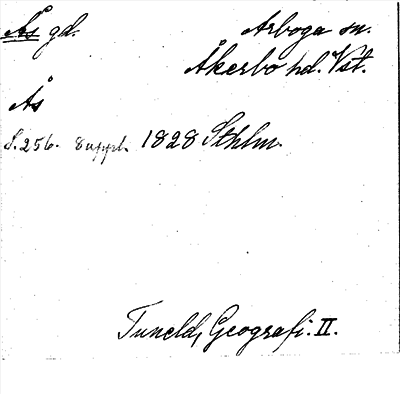 Ås gd. Arboga sn.
Åkerbo hd. Vst.
Ås
S. 256. 8 uppl. 1828 Sthlm.
Tuneld, Geografi. II.